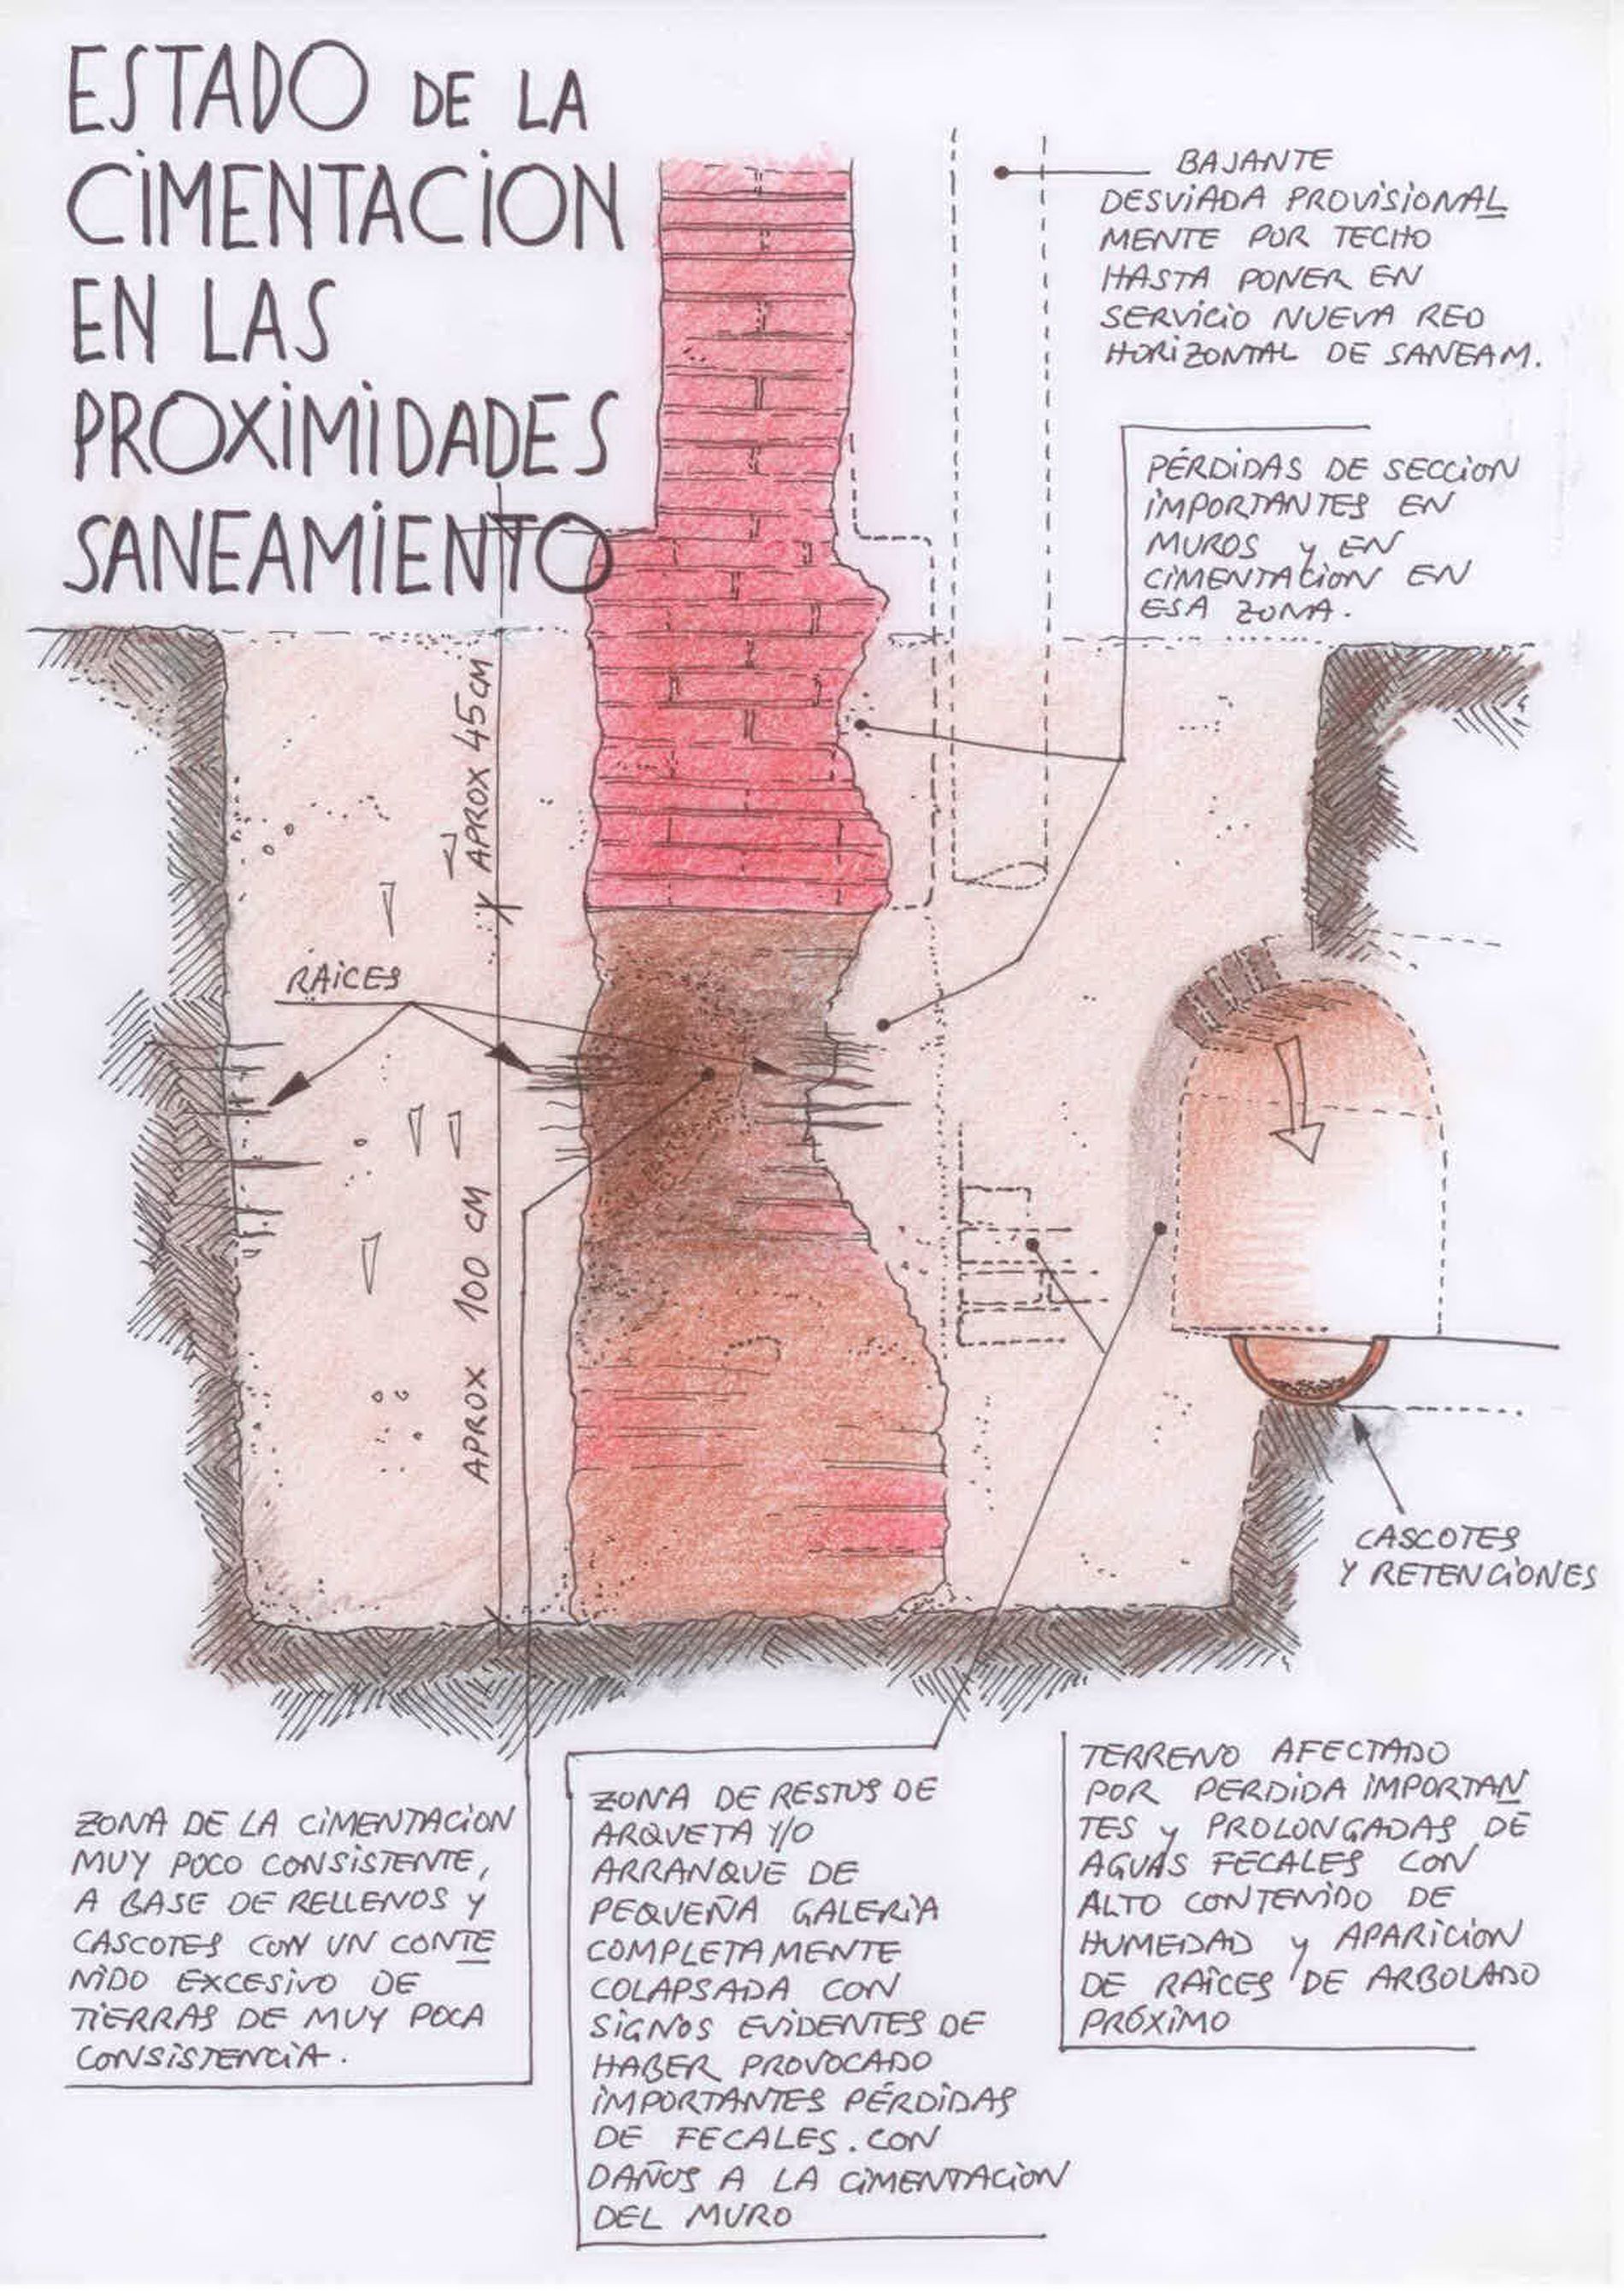 ESTADO DE LA
CIMENTACION
EN LAS
PROXIMIDADES
SANEAMIENTO
BAJANTE
DESVIADA PROVISIONAL
MENTE POR TECHO
HASTA PONER EN
SERVICIO NUEVA RED
HORIZONTAL DE SANEAM.
PÉRDIDAS DE SECCION
IMPORTANTES EN
MUROS y EN
CIMENTACION EN
ESA ZONA.
APROX 45 CM
RAICES
APROX 100 CM
CASCOTES
Y RETENCIONES
ZONA DE LA CIMENTACION
MUY POCO CONSISTENTE,
A BASE DE RELLENOS Y
CASCOTES CON UN CONTE
NIDO EXCESIVO DE
TIERRAS DE MUY POCA
CONSISTENCIA.
ZONA DE RESTOS DE
ARQUETA Y/O
ARRANQUE DE
PEQUEÑA GALERIA
COMPLETAMENTE
COLAPSADA CON
SIGNOS EVIDENTES DE
HABER PROVOCADO
IMPORTANTES PÉRDIDAS
DE FECALES. CON
DAÑOS A LA CIMENTACION
DEL MURO
TERRENO AFECTADO
POR PERDIDA IMPORTAN
TES y PROLONGADAS DE
AGUAS FECALES CON
ALTO CONTENIDO DE
HUMEDAD y APARICION
DE RAICES DE ARBOLADO
PRÓXIMO